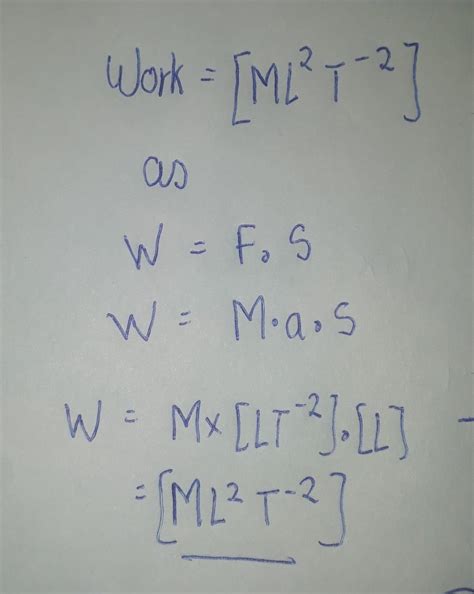 Work = [ML² T⁻²]
as
W = F. S
W = M.a.S
W = M× [LT⁻²].[L]
= [ML² T⁻²]